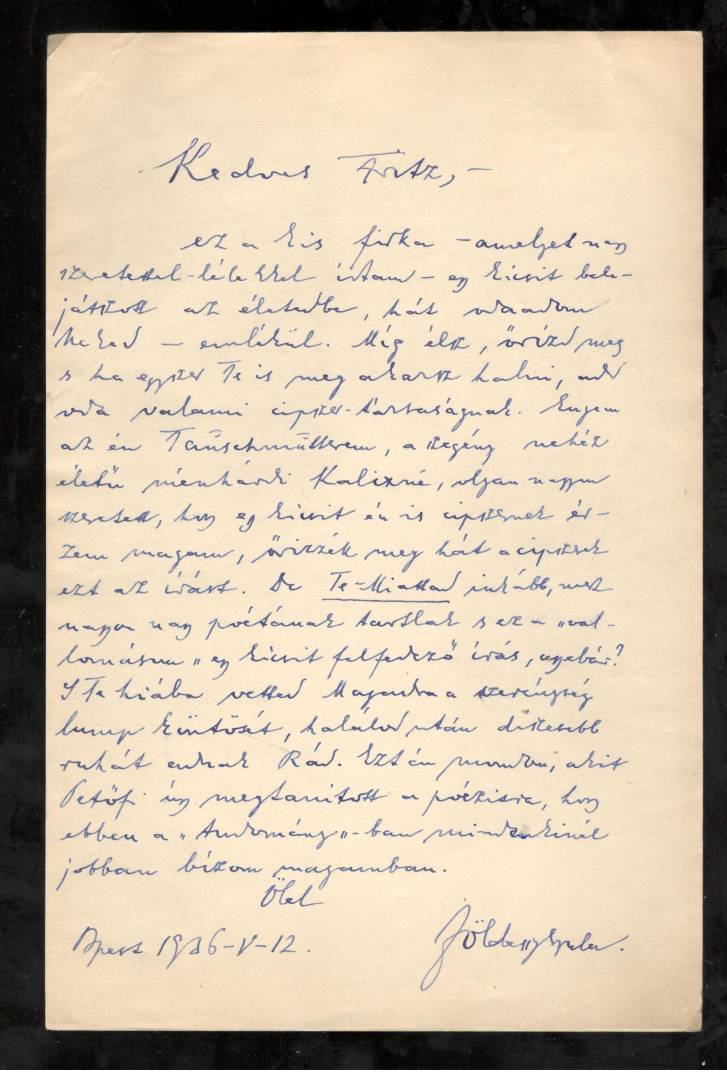 Kedves Fritz, –
ez a kis firka – amelyet nagy
szeretettel-lélekkel írtam – egy kicsit bele-
játszott az életedbe, hát odaadom
Neked – emlékül. Míg élsz, őrizd meg
s ha egyszer Te is meg akarsz halni, add
oda valami cipszer-társaságnak. Engem
az én Tauschmutterem, a szegény nehéz
életű ménhárdi Kalixné, olyan nagyon
szeretett, hogy egy kicsit én is cipszernek ér-
zem magam, őrizzék meg hát a cipszerek
ezt az írást. De Te-Miattad inkább, mert
nagyon nagy poétának tartlak s ez a „val-
lomásom" egy kicsit felfedező írás, ugyebár?
S Te hiába vetted Magadra a szerénység
lump köntösét, halálod után díszesebb
ruhát adnak Rád. Ezt én mondom, akit
Petőfi úgy megtanított a poézisra, hogy
ebben a „tudomány"-ban mindenkinél
jobban bízom magamban.
Ölel
Bpest 1936-V-12.
Földessy Gyula.